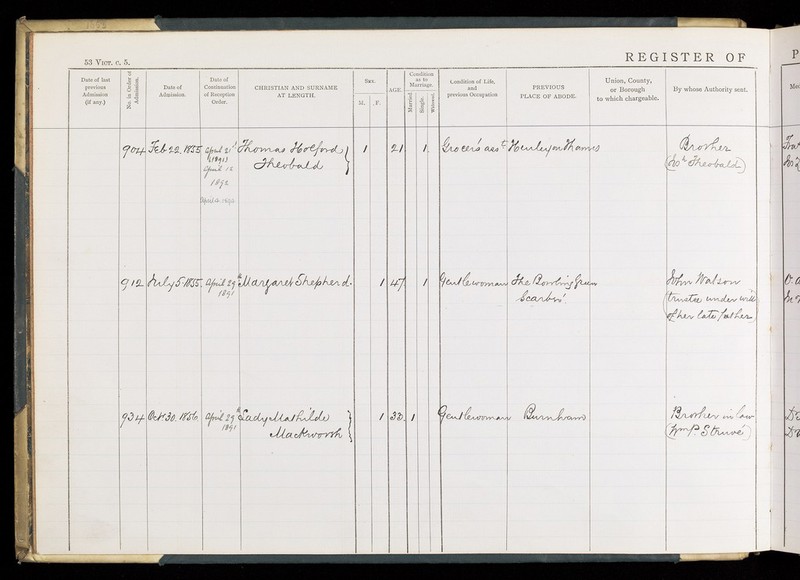 53 VICT. c. 5.
REGISTER OF
Date of last previous Admission (if any.)
No. in Order of Admission.
Date of Admission.
Date of Continuation of Reception Order.
CHRISTIAN AND SURNAME AT LENGTH.
Sex.
M. F.
AGE.
Condition as to Marriage.
Married. Single. Widowed.
Condition of Life, and previous Occupation
PREVIOUS PLACE OF ABODE.
Union, County, or Borough to which chargeable.
By whose Authority sent.
904 Feb 22. 1855 April 21 1891 Thomas Holford 1 21 1. Grocers asst Henley on Thames Brother
April 12 1892 Theobald (Theobald)
912 July 5 1855. April 29 1891 Margaret Shepherd. 1 47 1 Gentlewoman The Bowling Green John Watson
Scarbro'. (trustee under will
of her late father)
934 Oct 30. 1856. April 29th 1891 Lady Mathilde 1 33 1 Gentlewoman Burnham Brother in law
Mackworth (Wm P. Struvé)